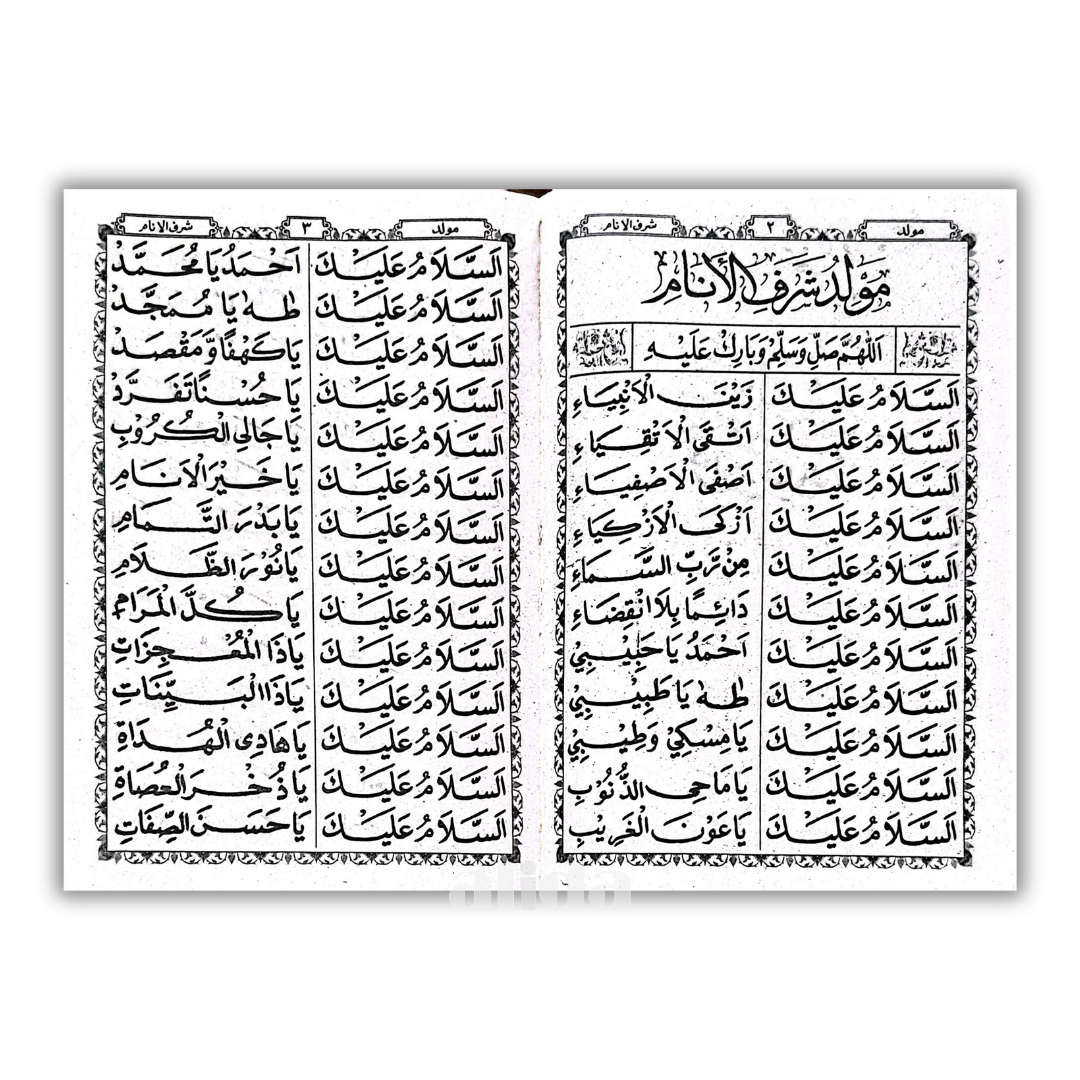 مولد ٢ شرف الانام
مَوْلِدُ شَرَفِ الْأَنَامِ
اَللّٰهُمَّ صَلِّ وَسَلِّمْ وَبَارِكْ عَلَيْهِ
اَلسَّلَامُ عَلَيْكَ زَيْنَ الْاَنْبِيَاءِ
اَلسَّلَامُ عَلَيْكَ اَتْقَى الْاَتْقِيَاءِ
اَلسَّلَامُ عَلَيْكَ اَصْفَى الْاَصْفِيَاءِ
اَلسَّلَامُ عَلَيْكَ اَزْكَى الْاَزْكِيَاءِ
اَلسَّلَامُ عَلَيْكَ مِنْ رَّبِّ السَّمَاءِ
اَلسَّلَامُ عَلَيْكَ دَائِمًا بِلَا انْقِضَاءِ
اَلسَّلَامُ عَلَيْكَ اَحْمَدُ يَا حَبِيْبِيْ
اَلسَّلَامُ عَلَيْكَ طٰهٰ يَا طَبِيْبِيْ
اَلسَّلَامُ عَلَيْكَ يَا مِسْكِيْ وَطِيْبِيْ
اَلسَّلَامُ عَلَيْكَ يَا مَاحِى الذُّنُوْبِ
اَلسَّلَامُ عَلَيْكَ يَا عَوْنَ الْغَرِيْبِ
مولد ٣ شرف الانام
اَلسَّلَامُ عَلَيْكَ اَحْمَدُ يَا مُحَمَّدْ
اَلسَّلَامُ عَلَيْكَ طٰهٰ يَا مُمَجَّدْ
اَلسَّلَامُ عَلَيْكَ يَا كَهْفًا وَّمَقْصَدْ
اَلسَّلَامُ عَلَيْكَ يَا حُسْنًا تَفَرَّدْ
اَلسَّلَامُ عَلَيْكَ يَا جَالِى الْكُرُوْبِ
اَلسَّلَامُ عَلَيْكَ يَا خَيْرَ الْاَنَامِ
اَلسَّلَامُ عَلَيْكَ يَا بَدْرَ التَّمَامِ
اَلسَّلَامُ عَلَيْكَ يَا نُوْرَ الظَّلَامِ
اَلسَّلَامُ عَلَيْكَ يَا كُلَّ الْمَرَامِ
اَلسَّلَامُ عَلَيْكَ يَا ذَا الْمُعْجِزَاتِ
اَلسَّلَامُ عَلَيْكَ يَا ذَا الْبَيِّنَاتِ
اَلسَّلَامُ عَلَيْكَ يَا هَادِى الْهُدَاةِ
اَلسَّلَامُ عَلَيْكَ يَا ذُخْرَ الْعُصَاةِ
اَلسَّلَامُ عَلَيْكَ يَا حَسَنَ الصِّفَاتِ